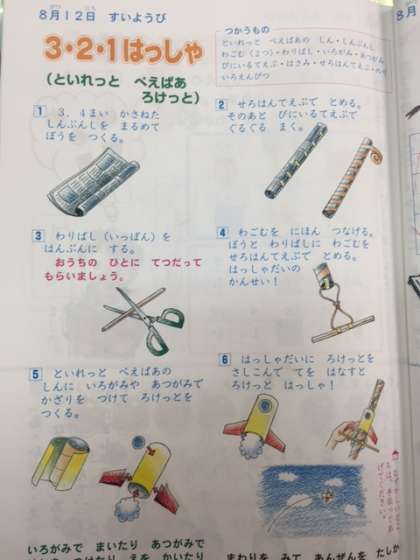 8月12日 すいようび
3・2・1はっしゃ
(といれっと ぺえぱあ
ろけっと)
つかうもの
といれっと ぺえぱあの しん・しんぶんし
わごむ(2つ)・わりばし・いろがみ・あつがみ
びにいるてえぷ・はさみ・せろはんてえぷ・のり
いろえんぴつ
1 3、4まい かさねた
しんぶんしを まるめて
ぼうを つくる。
2 せろはんてえぷで とめる。
そのあと びにいるてえぷで
ぐるぐる まく。
3 わりばし(いっぽん)を
はんぶんに する。
おうちの ひとに てつだって
もらいましょう。
4 わごむを にほん つなげる。
ぼうと わりばしに わごむを
せろはんてえぷで とめる。
はっしゃだいの
かんせい!
5 といれっと ぺえぱあの
しんに いろがみや あつがみで
かざりを つけて ろけっとを
つくる。
6 はっしゃだいに ろけっとを
さしこんで てを はなすと
ろけっと はっしゃ!
いろがみで まいたり あつがみで
まわりを みて あんぜんを たしか